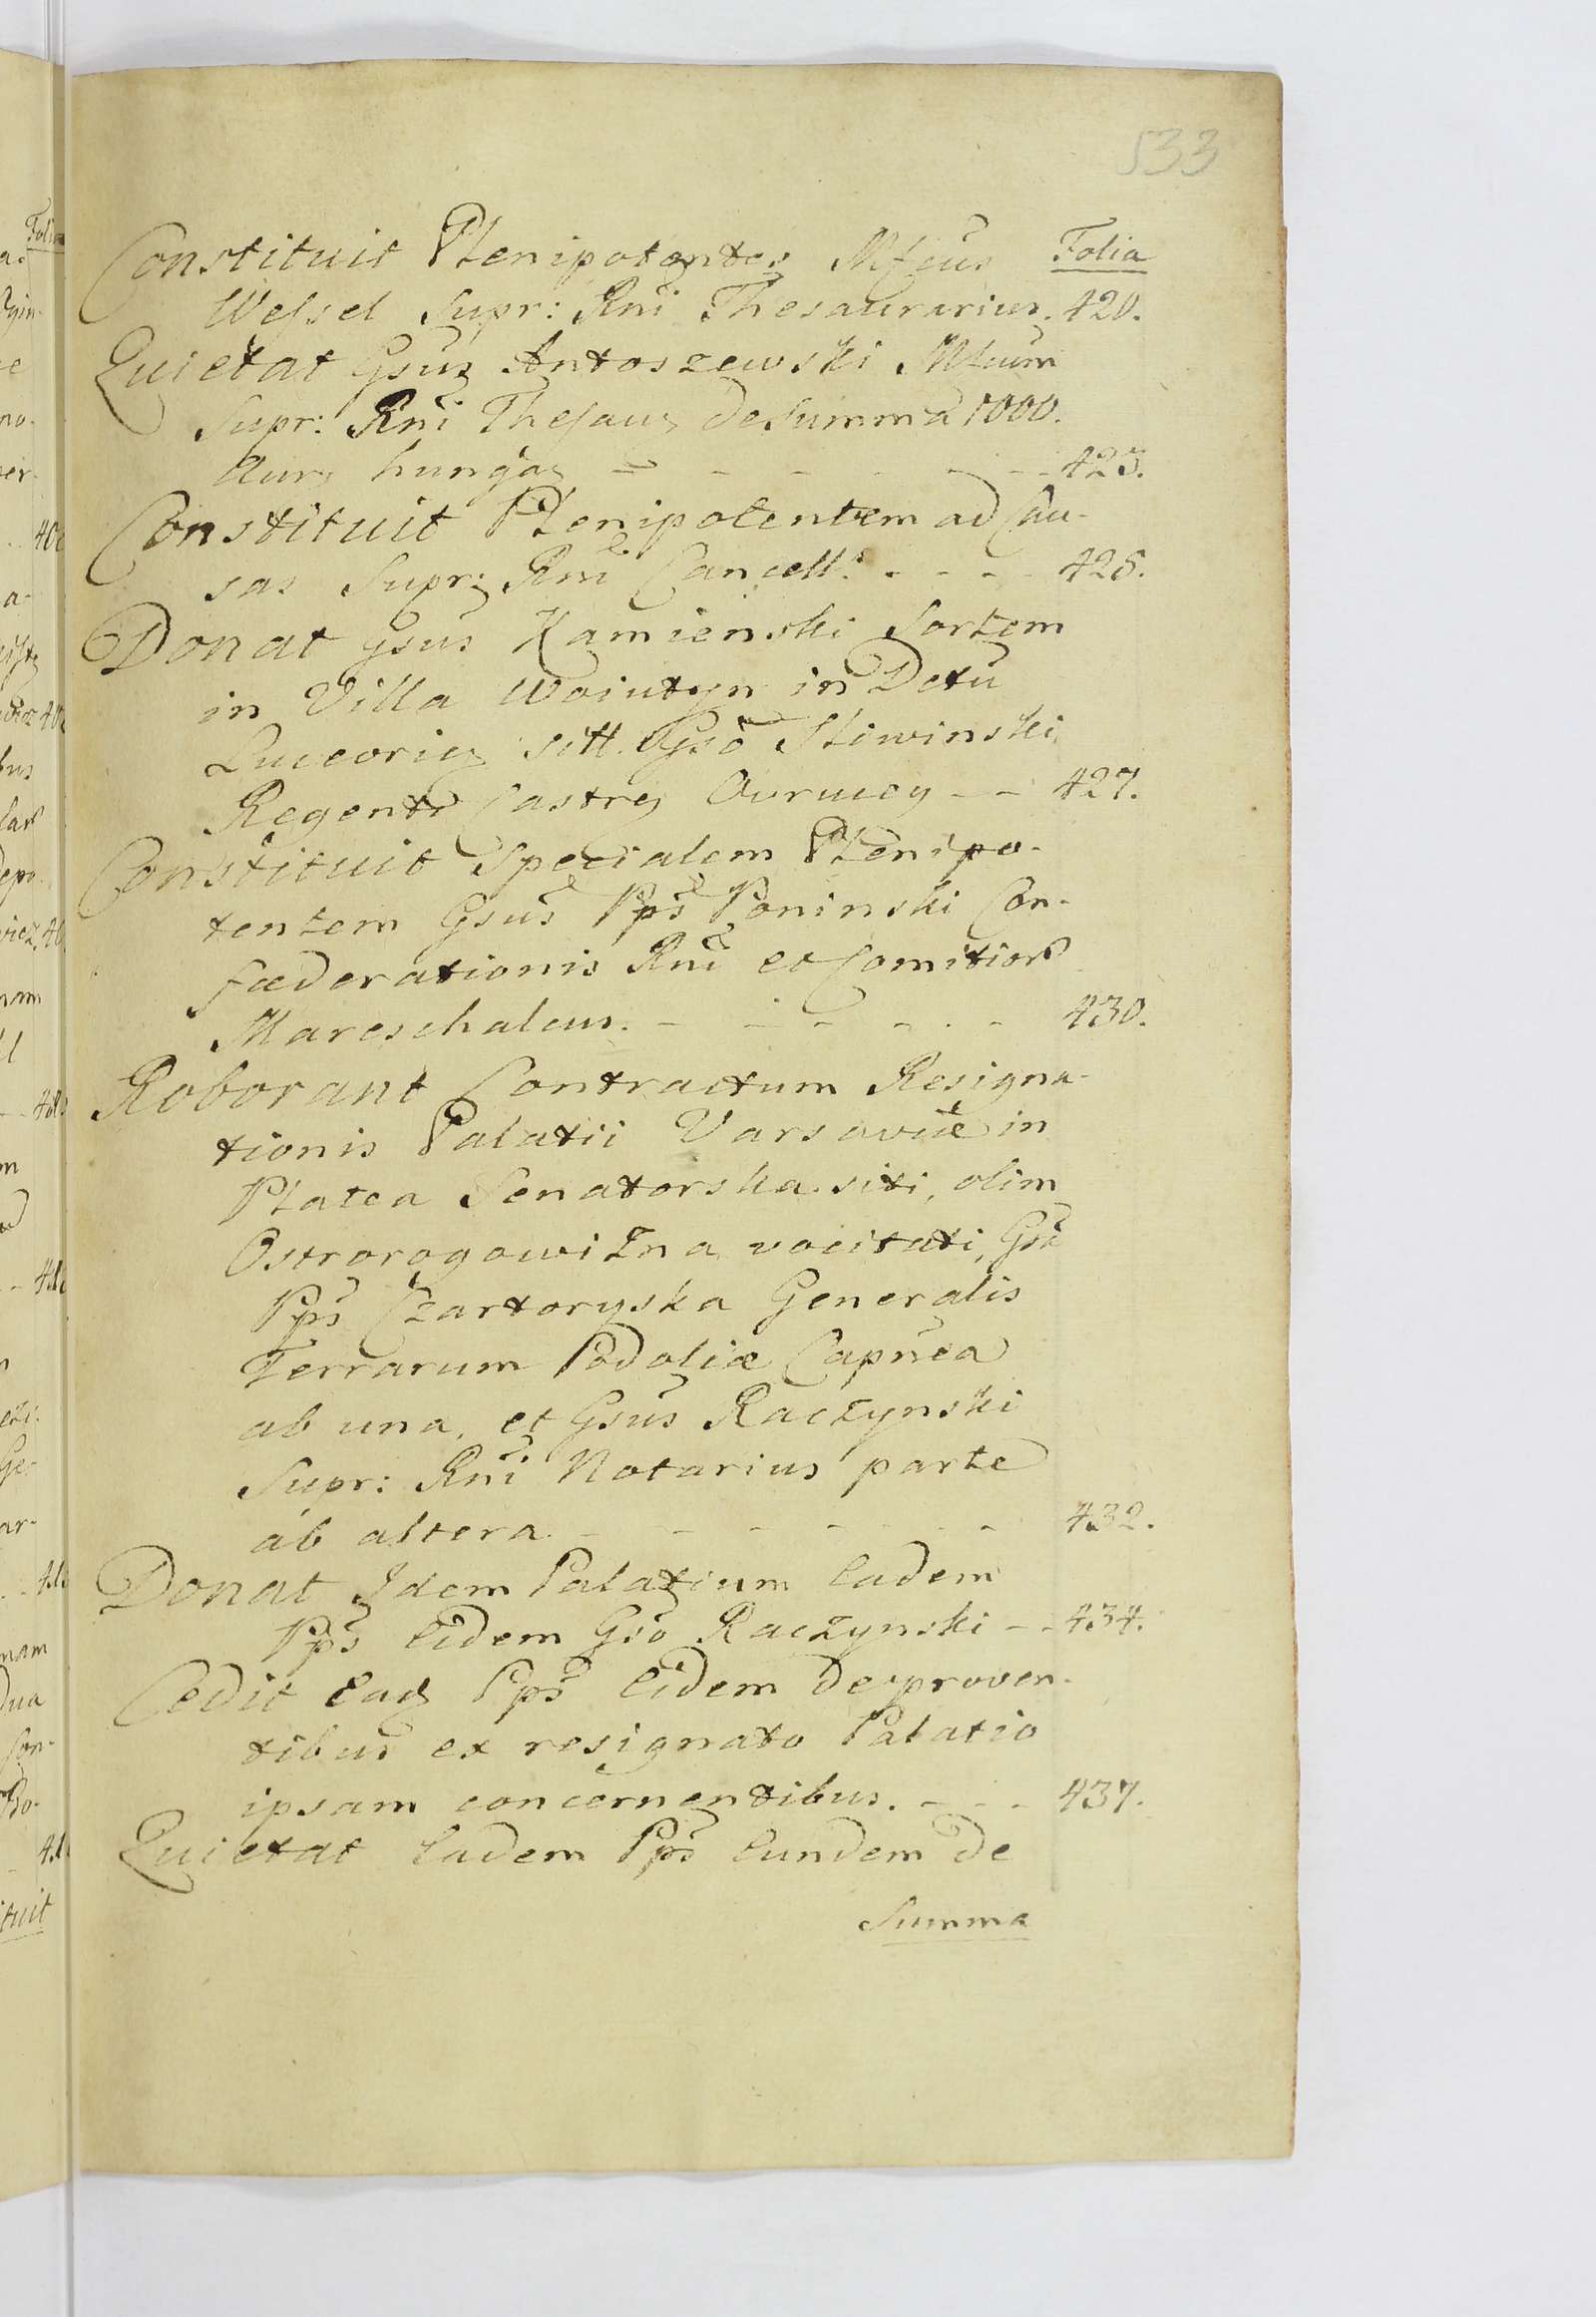 533
Folia
Constituit Plenipotentes Mfcus
Wessel Supr: Rni Thesaurarius. 420.
Quietat Gsus Antoszewski Mfcum
Supr: Rni Thesaur de Summa 1000.
Aur hungar - - - - - - 423.
Constituit Plenipotentem ad Cau-
sas Supr: Rni Cancell: - - - - 425.
Donat Gsus Kamienski Sortem
in Villa Woiutyn in Dctu
Luceorien sitt. Gso Sliwinski
Regenti Castren Ovrucen - - 427.
Constituit Specialem Plenipo-
tentem Gsus Pps Poninski Con-
fæderationis Rni et Comitior
Mareschalcus. - - - - - - 430.
Roborant Contractum Resigna-
tionis Palatii Varsaviæ in
Platea Senatorska siti, olim
Ostrorogowizna vocitati, Gsa
Pps Czartoryska Generalis
Terrarum Podoliæ Capnea
ab una, et Gsus Raczynski
Supr: Rni Notarius parte
ab altera - - - - - - - 432.
Donat Idem Palatium Eadem
Pps Eidem Gso Raczynski - - 434.
Cedit Ead Pps Eidem de proven-
tibus ex resignato Palatio
ipsam concernentibus. - - - 437.
Quietat Eadem Pps Eundem de
Summa